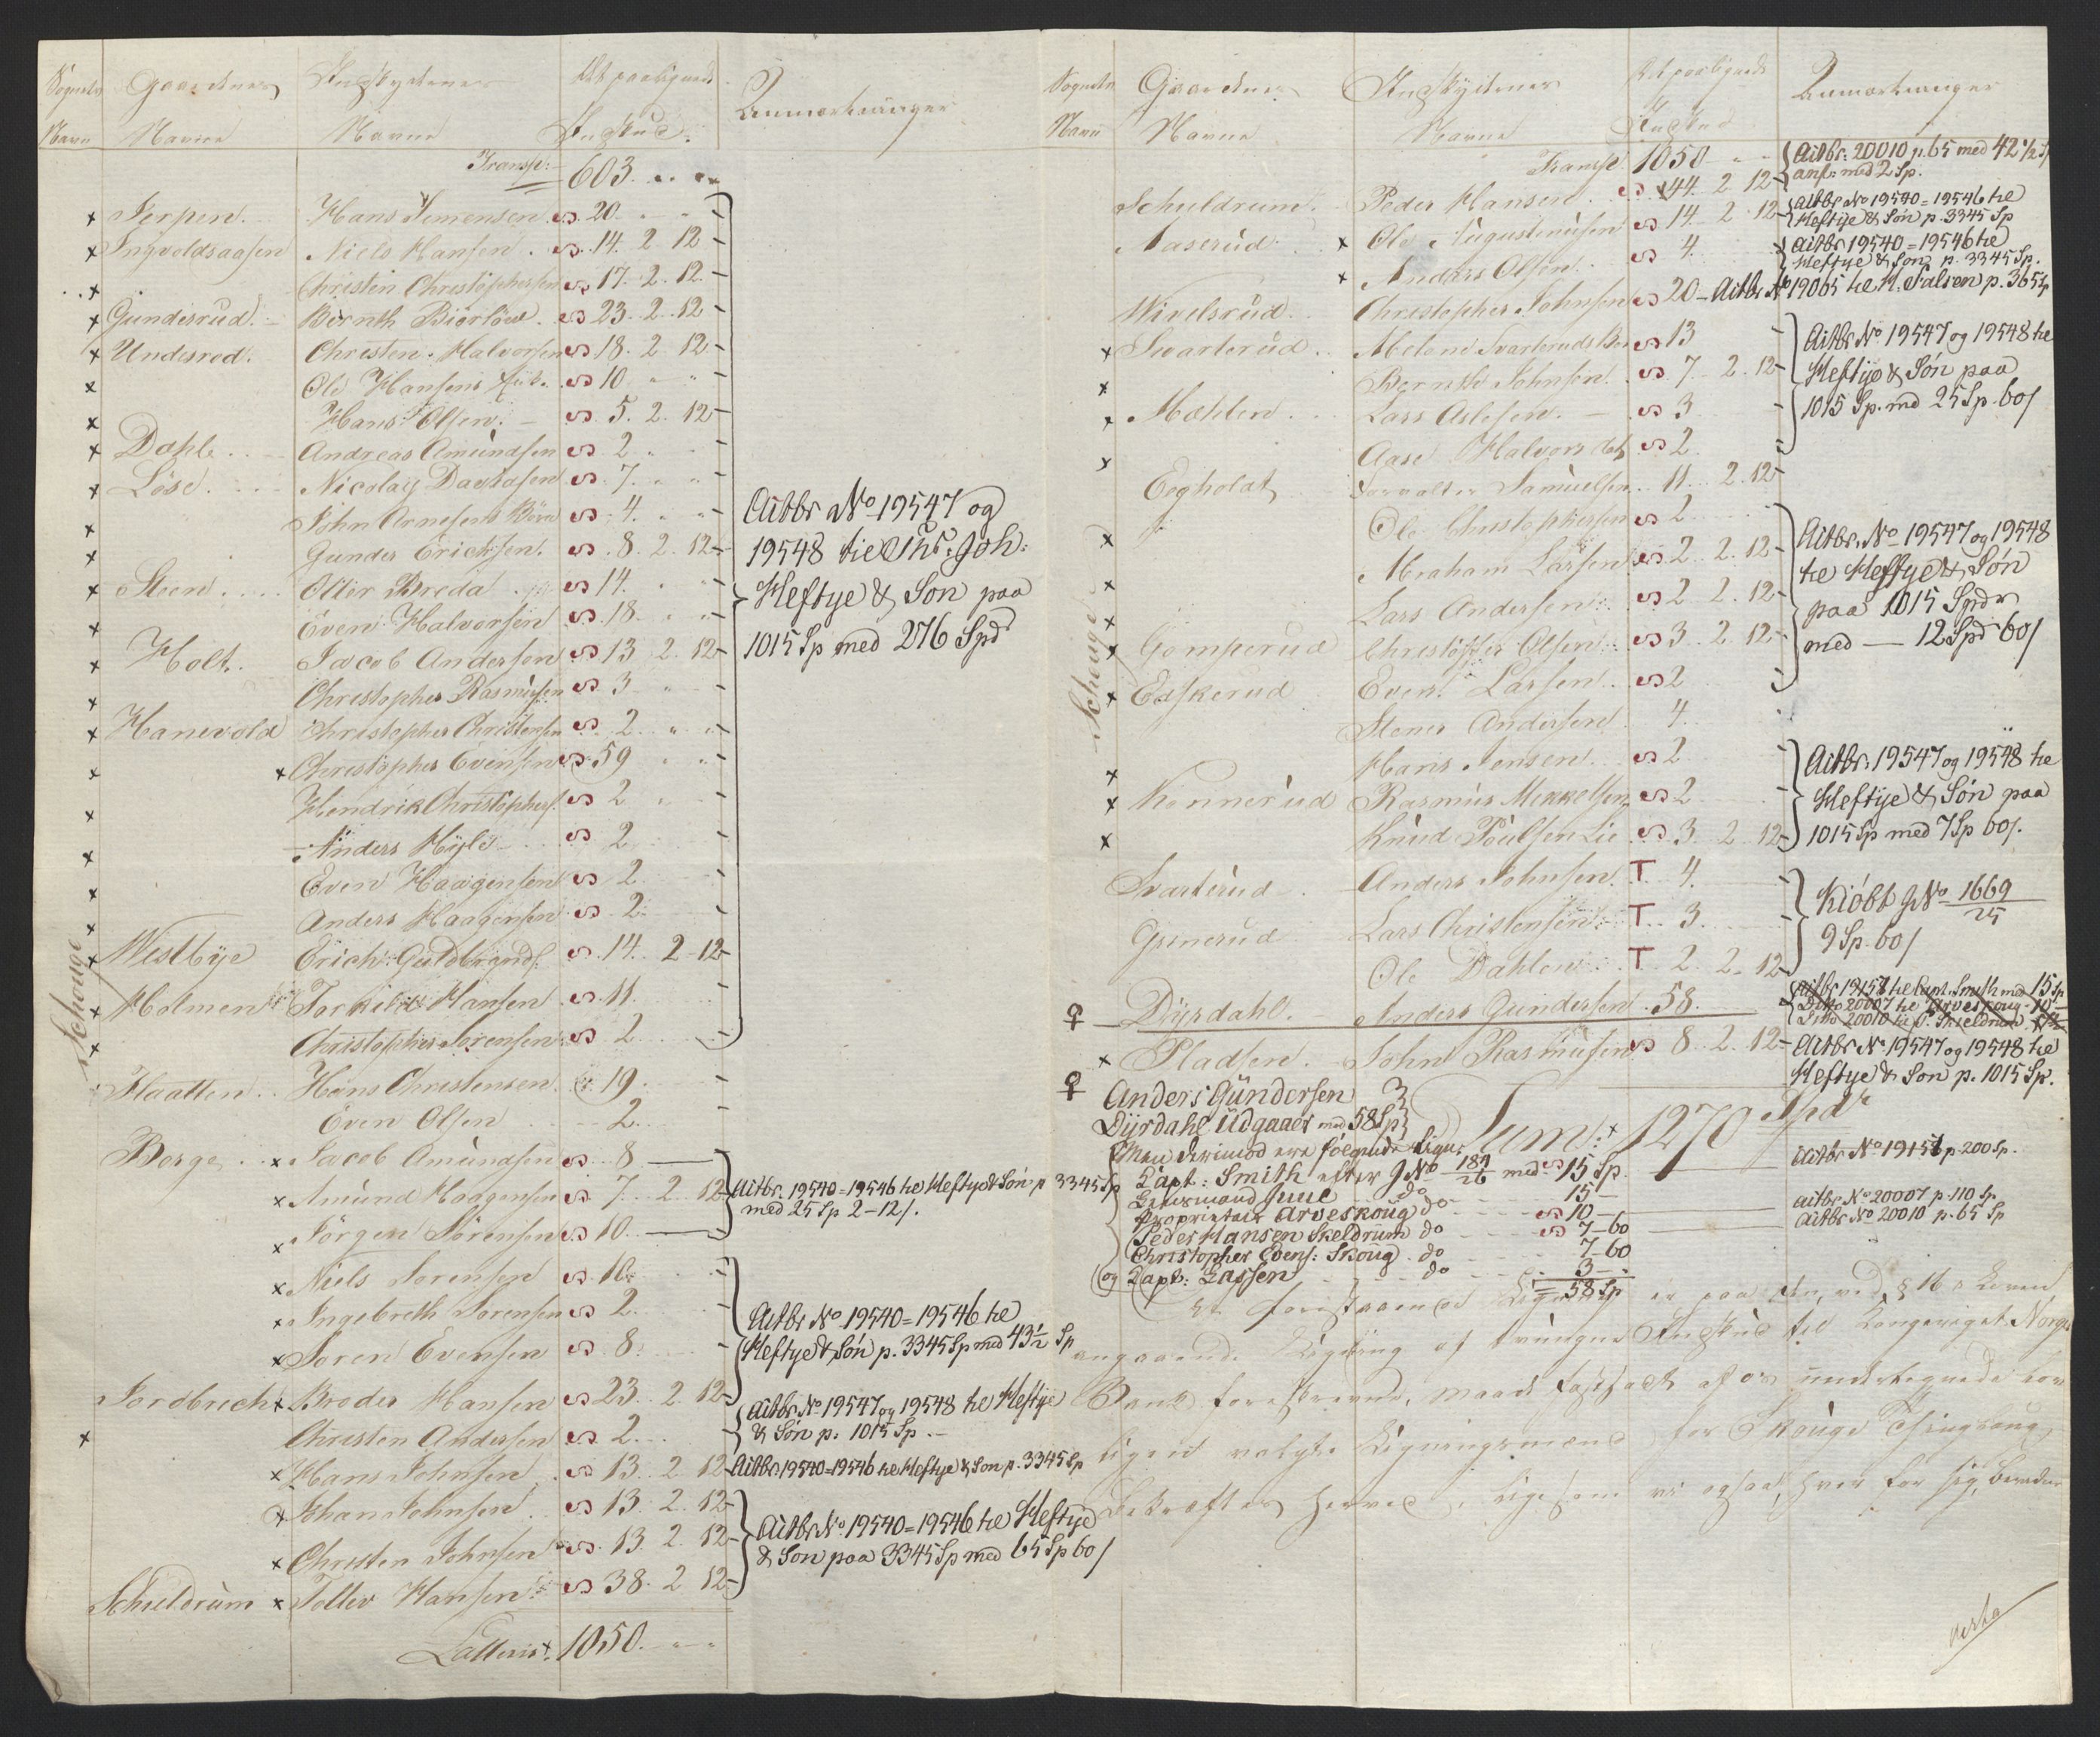 Sognets Gaardenes Indskydernes Det paalignede Anmærkninger
Navn Navne Navne Indskud
Transp: 603 " "
Jerpen Hans Sørensen 20 " "
Ingvoldsaasen Niels Hansen 14. 2 12
Christen Christophersen 17. 2. 12
Gunderud Bernth Bierløw 23. 2. 12
Underød Christen Halvorsen 18. 2 12
Ole Hansens 10 " "
Hans Olsen 5. 2. 12
Dahle Andreas Amundsen 2 " "
Løse Nicolay Davidsen 7 " "
John Arnesens Børn 4. " "
Gunder Erichsen 8. 2. 12
Steen Otter Breda 14. " "
Even Halvorsen 18 " "
Holt Jacob Andersen 13 2 12
Christopher Rasmusen 3 " "
Hanevold Christopher Christensen 2 " "
Christopher Evensen 59 " "
Hendrik Christophers. 2 "
Anders Hylle 2
Even Haagensen 2
Anders Haagensen 2
Westbye Erich Guldbrands. 14. 2 12
Holmen Torkild Hansen 11
Christopher Sørensen 2
Aitbr No 19547 og
19548 til Ths: Joh:
Heftye & Søn paa
1015 Sp med 276 Spd
Schouge
Flaatten Hans Christensen 19
Even Olsen 2
Berge Jacob Amundsen 8
Amund Haagensen 7 2 12
Jørgen Sørensen 10
Aitbr. 19540=19546 til Heftye & Søn p 3345 Sp
med 25 Sp 2-12/.
Niels Sørensen 16
Ingebreth Sørensen 2
Søren Evensen 8
Aitbr No 19540=19546 til
Heftye & Søn p. 3345 Sp med 43 1/2 Sp
Jordbrech Broder Hansen 23 2 12
Christen Andersen 2
Aitbr. No 19547 og 19548 til Heftye
& Søn p. 1015 Sp.
Hans Johnsen 13 2 12 Aitbr 19540=19546 til Heftye & Søn p. 3345 Sp
Johan Johnsen 13. 2. 12
Christen Johnsen 13. 2 12
Schieldrum Tollev Hansen 38. 2 12
Aitbr No 19540=19546 til Heftye
& Søn paa 3345 Sp med 65 Sp 60/
Latteris 1050 " "
Sognets Gaardenes Indskydernes Det paalignede Anmærkninger
Navn Navne Navne Indskud
Transp 1050 " "
Schieldrum Peder Hansen 44. 2 12 Aitbr: 20010 p. 65 med 42 1/2 Sp
anf: med 2 Sp.
Aaserud Ole Augustinusen 14 2 12 Aitbr No 19540=19546 til
Heftye & Søn p. 3345 Sp
Anders Olsen 4 Aitbr 19540=19546 til
Heftye & Søn p. 3345 Sp.
Wivelsrud Christopher Johnsen 20 Aitbr No 19065 til H. Falsen p. 365 Sp
Svarterud Abelone Svarteruds 13
Bernth Johnsen 7 2. 12
Mæhlen Lars Aslesen 3
Aase Halvorsdat 2
Aitbr No 19547 og 19548 til
Heftye & Søn paa
1015 Sp. md 25 Sp. 60/
Eegholdt Forvalter Samuelsen 11 2. 12
Ole Christophersen 2
Abraham Larsen 2 2. 12
Lars Andersen 2 2. 12
Gomperud Christopher Olsen 3 2. 12
Eidskerud Even Larsen 2
Aitbr. No 19547 og 19548
til Heftye & Søn
paa 1015 Spdr
med — 12 Spd 60/
Schouge
Stener Andersen 4
Hans Jensen 2
Konnerud Rasmus Mikkelsen 2
Knud Poulsen Lie 3 2 12
Aitbr. 19547 og 19548 til
Heftye & Søn paa
1015 Sp med 7 Sp 60/.
Svarterud Anders Johnsen T 4
Grinerud Lars Christensen T 3
Ole Dahlen T 2 2. 12
Kiöbt gNo 1669/25
9 Sp. 60/
Dyrdahl Anders Gundersen 58
Aitbr 19151 til Capt. Smith med 15 Sp
Ditto 20007 til Arveskoug - 10
Ditto 20010 til P. Skieldrum
Pladsen John Rasmusen 8 2. 12 Aitbr No 19547 og 19548 til
Heftye & Søn p. 1015 Sp.
Anders Gundersen
Dyrdahl Udgaaer med 58 Sp
Sum: 1270 Spdr
Men derimod ere følgende Lign:
Capt: Smith efter gNo 189/26 med 15 Sp. Aitbr No 19151 p 200 Sp.
Lensmand Juul do 15 —
Proprietair Arveskoug do 10 — Aitbr No 20007 p. 110 Sp
Peder Hansen Skeldrum do 7-60 Aitbr No 20010 p. 65 Sp
Christopher Evens: Skoug do 7-60
og Capt: Lassen do 3 —
58 Sp
At forestaaende Ligning er paa den, ved § 16 i Loven
angaaende Ligning af tvungne Indskud til Kongeriget Norges
Bank foreskrevne, maade fastsadt af os undertegnede lov
ligen valgte Ligningsmænd for Skouge Thinglaug
bekræfter herved, ligesom vi ogsaa, hver for sig,
verte